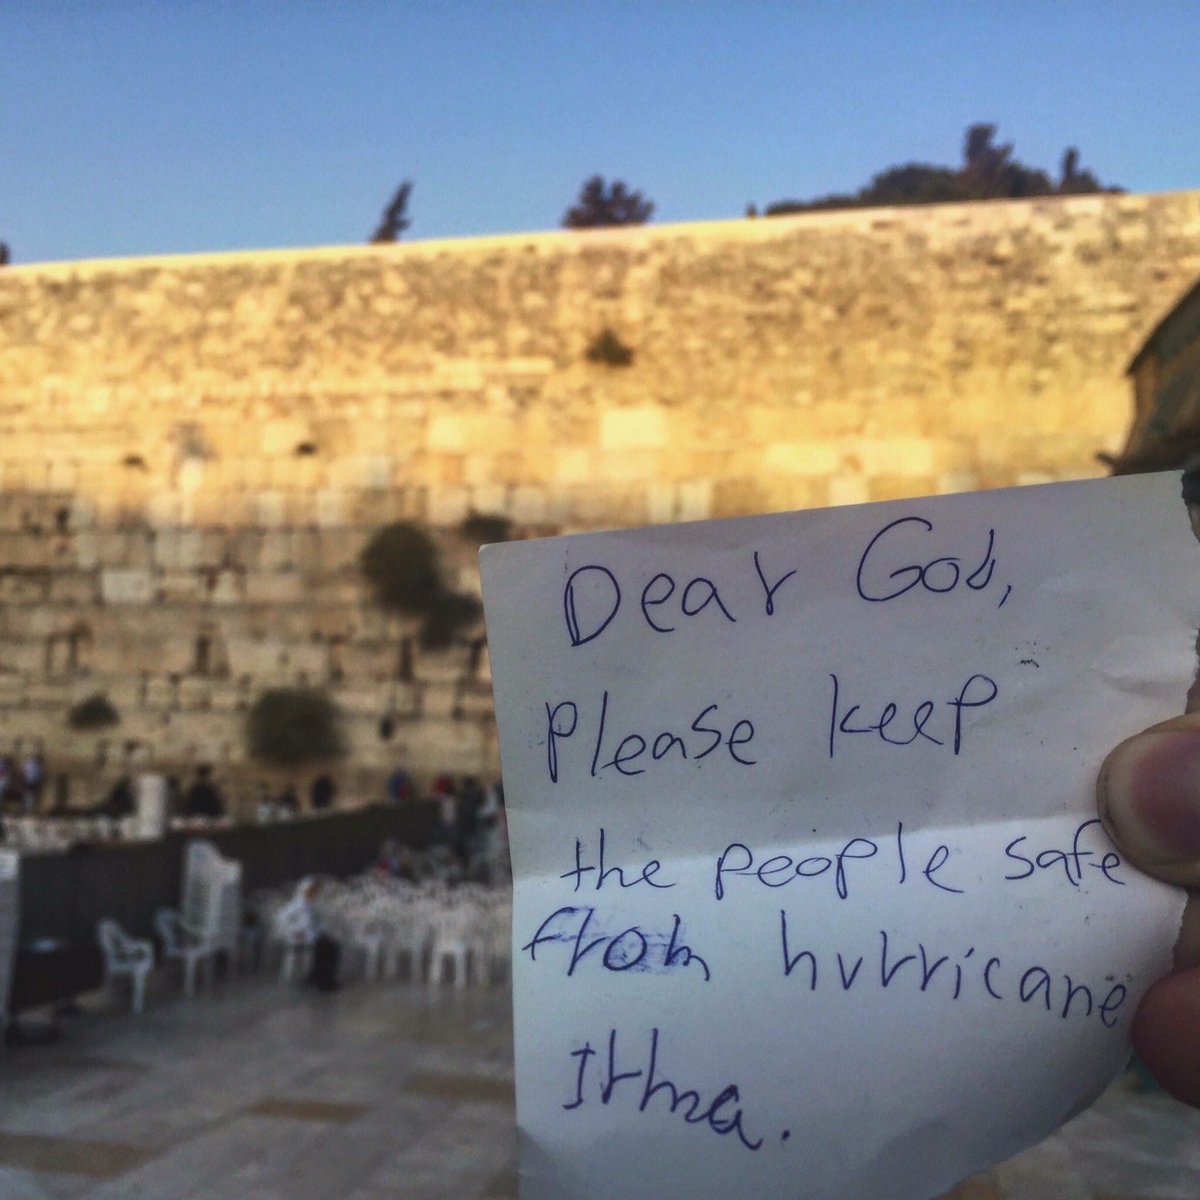 Dear God,
Please keep
the people safe
from hurricane
Irma.